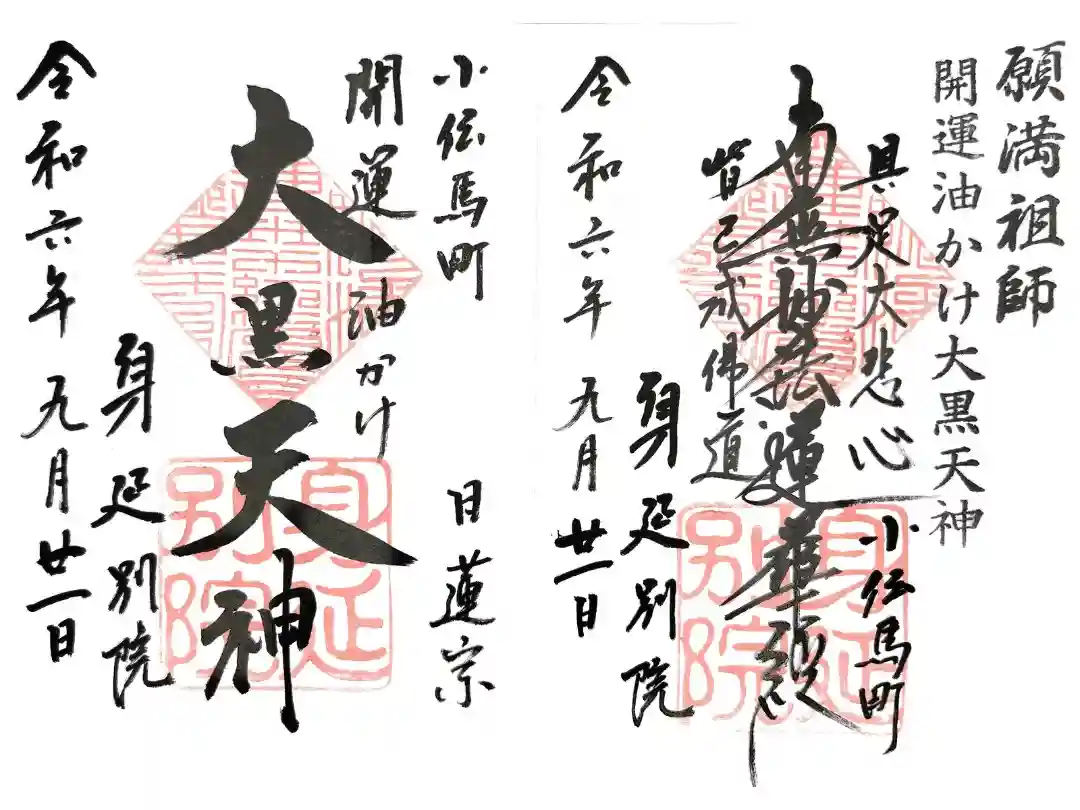 願満祖師
開運油かけ大黒天神
具足大悲心
小伝馬町
南無妙法蓮華経
皆已成佛道
身延別院
令和六年 九月廿一日
小伝馬町
日蓮宗
開運油かけ
大黒天神
身延別院
令和六年 九月廿一日
身延別院
身延別院